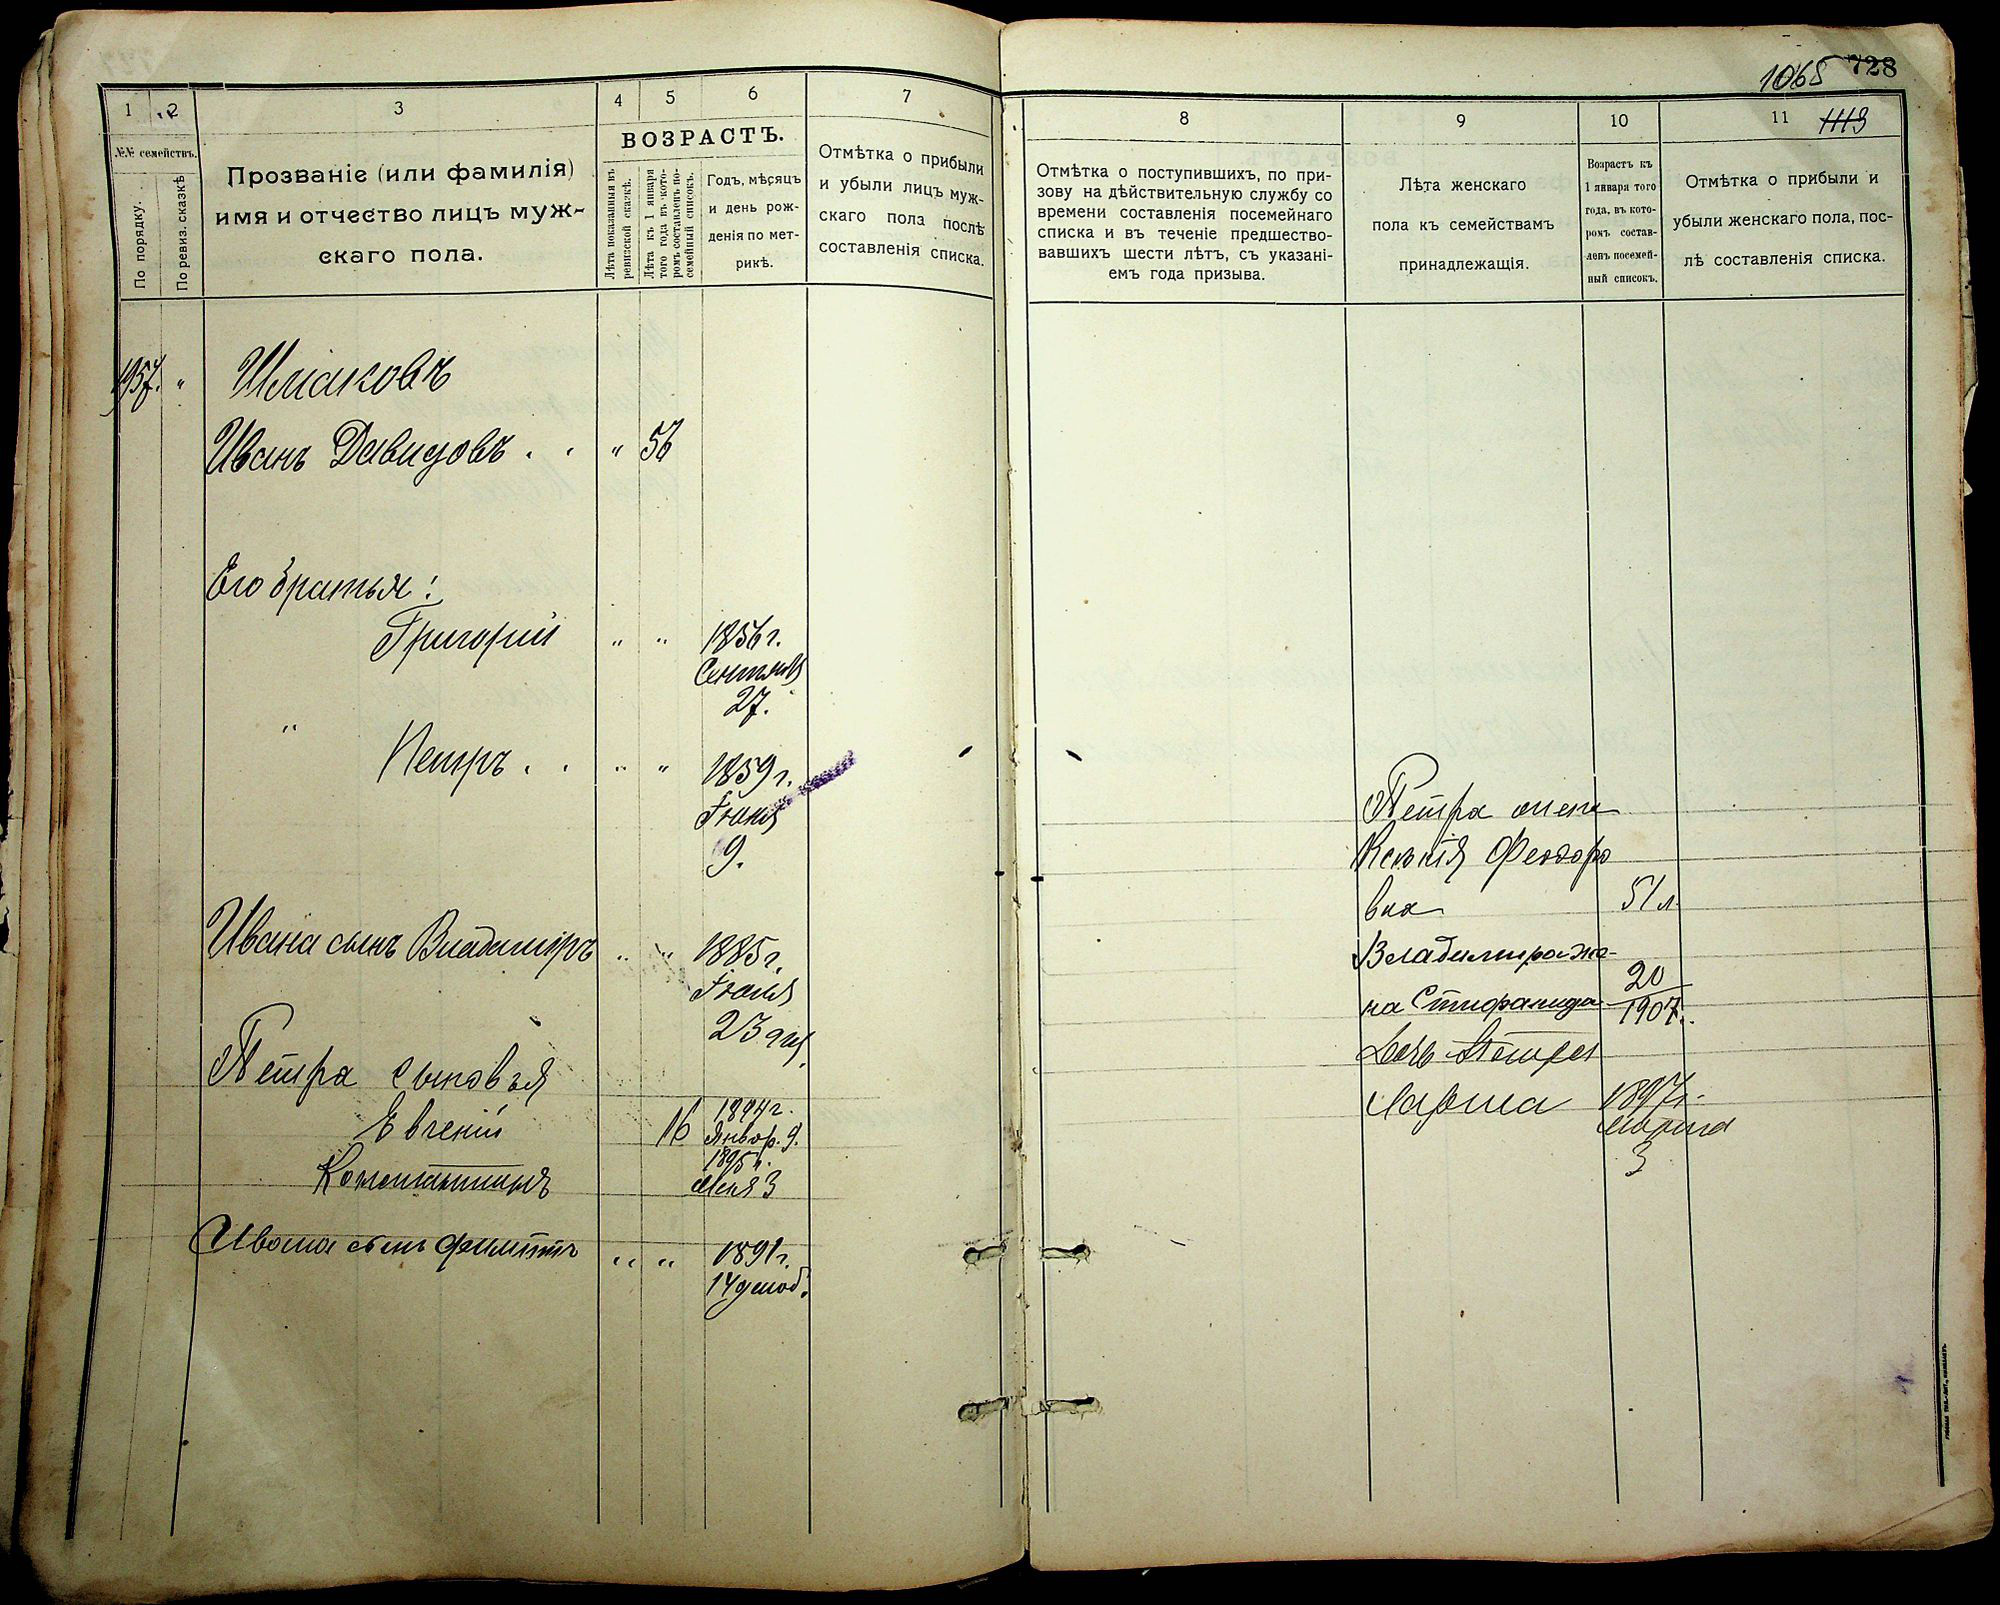 1 2 3 4 5 6 7
№№ семействъ.
По порядку.
По ревиз. сказкѣ
Прозваніе (или фамилія)
имя и отчество лицъ муж-
скаго пола.
ВОЗРАСТЪ.
Лѣта показанныя въ
ревизской сказкѣ.
Лѣта къ 1 января
того года въ кото-
ромъ составленъ по-
семейный списокъ.
Годъ, мѣсяцъ
и день рож-
денія по мет-
рикѣ.
Отмѣтка о прибыли
и убыли лицъ муж-
скаго пола послѣ
составленія списка.
1957. "
Шмаковъ
Иванъ Давидовъ . . " 56
Его братья:
Григорій " " 1856 г.
Сентяб
27.
" Петръ . . " " 1859 г.
Іюня
9.
Ивана сынъ Владиміръ " " 1885 г.
Іюня
23 дня
Петра сыновья
Евгеній 16 1894 г.
Январ. 9.
Константинъ 1895 г.
Мая 3
Ивана сынъ Филиппъ " " 1891 г.
14 нояб.
1065 728
8 9 10 11 1113
Отмѣтка о поступившихъ, по при-
зову на дѣйствительную службу со
времени составленія посемейнаго
списка и въ теченіе предшество-
вавшихъ шести лѣтъ, съ указані-
емъ года призыва.
Лѣта женскаго
пола къ семействамъ
принадлежащія.
Возрастъ къ
1 января того
года, въ кото-
ромъ состав-
ленъ посемей-
ный списокъ.
Отмѣтка о прибыли и
убыли женскаго пола, пос-
лѣ составленія списка.
Петра жена
Ксенія Феодоро
вна 51 л
Владимира же-
на Стифанида 20
1907 г.
Дочь Петра
Лариса 1897 г.
Марта
3